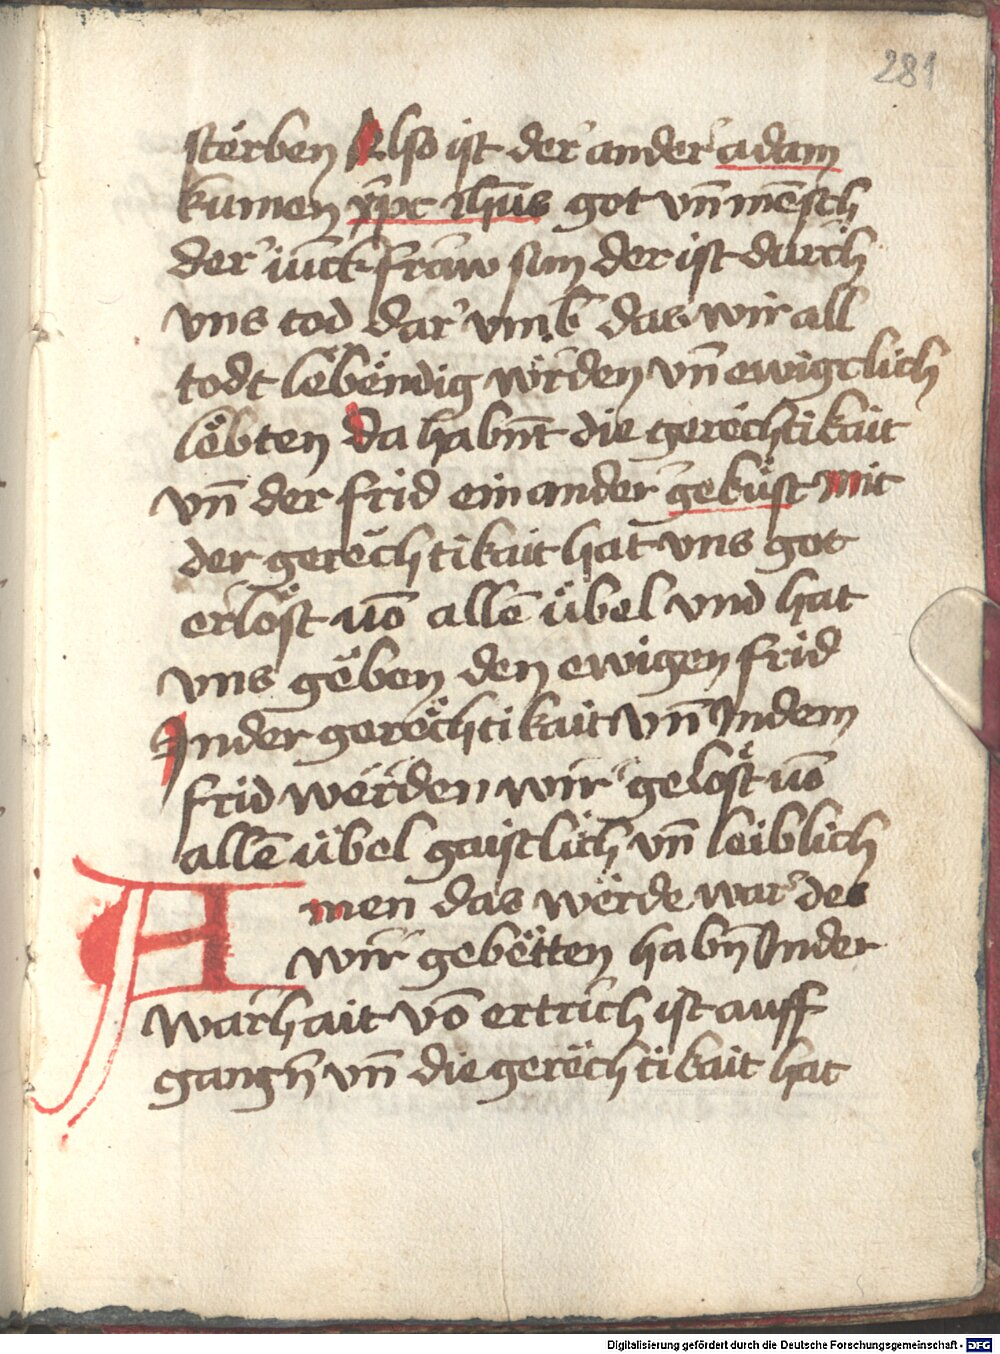 281
sterben Also ist der ander adam
kumen xp̄c ih̄us got vn̄ mēsch
der iūck fraw sun der ist durch
vns tod dar vmb das wir all
todt lebendig wërden vn̄ ewigclich
lëbten da habn̄t die gerechtikait
vn̄ der frid ein ander geküst mit
der gerechtikait hat vns got
erlöst uō allē übel vnd hat
vns gëben den ewigen frid
In der gerëchtikait vn̄ In dem
frid wërden wir gelöst uō
allē übel gaistlich vn̄ leiblich
Amen das wërde war des
wir gebëtten habn̄ In der
warhait vō ertrich ist auff
gangn̄ vn̄ die gerëchtikait hat
Digitalisierung gefördert durch die Deutsche Forschungsgemeinschaft - DFG